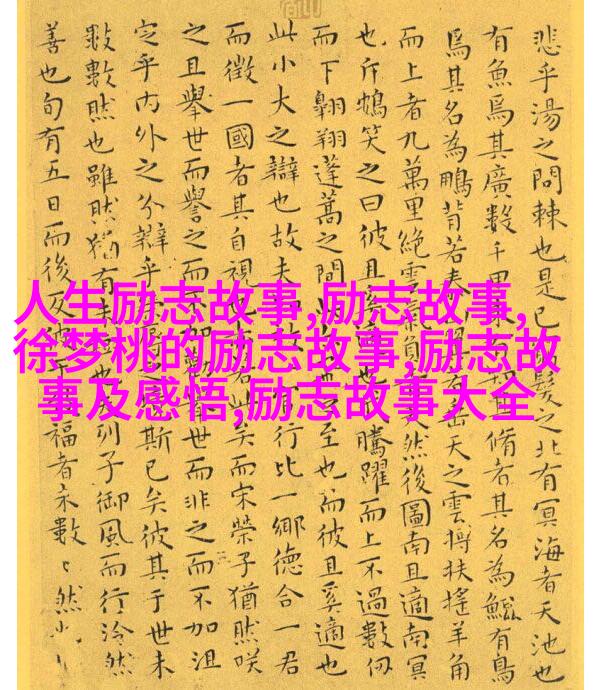 人生励志故事,励志故事,
徐梦桃的励志故事,励志故
事及感悟,励志故事大全
悲乎湯之問棘也是已髮之北有冥海者天池也
有魚焉其廣數千里未有知其脩者其名為鯤有鳥
焉其名為鵬背若泰山翼若垂天之雲摶扶搖羊角
而上者九萬里絕雲氣負天然後圖南且適南冥
也斥鴳笑之曰彼且奚適也騰躍而上不過數仞
而下翱翔蓬蒿之間此之至也而彼且奚適也
此小大之辯也故夫知效一官行比一鄉德合一君
而徵一國者其自視也若此矣而宋榮子猶然咲
之且舉世而譽之而不加勸舉世而非之而不加沮
定乎內外之分辯乎榮辱斯已矣彼其于世未
數數然也雖然猶有未也夫列子御風而行泠然
善也旬有五日而後反彼于福者未數〻然也